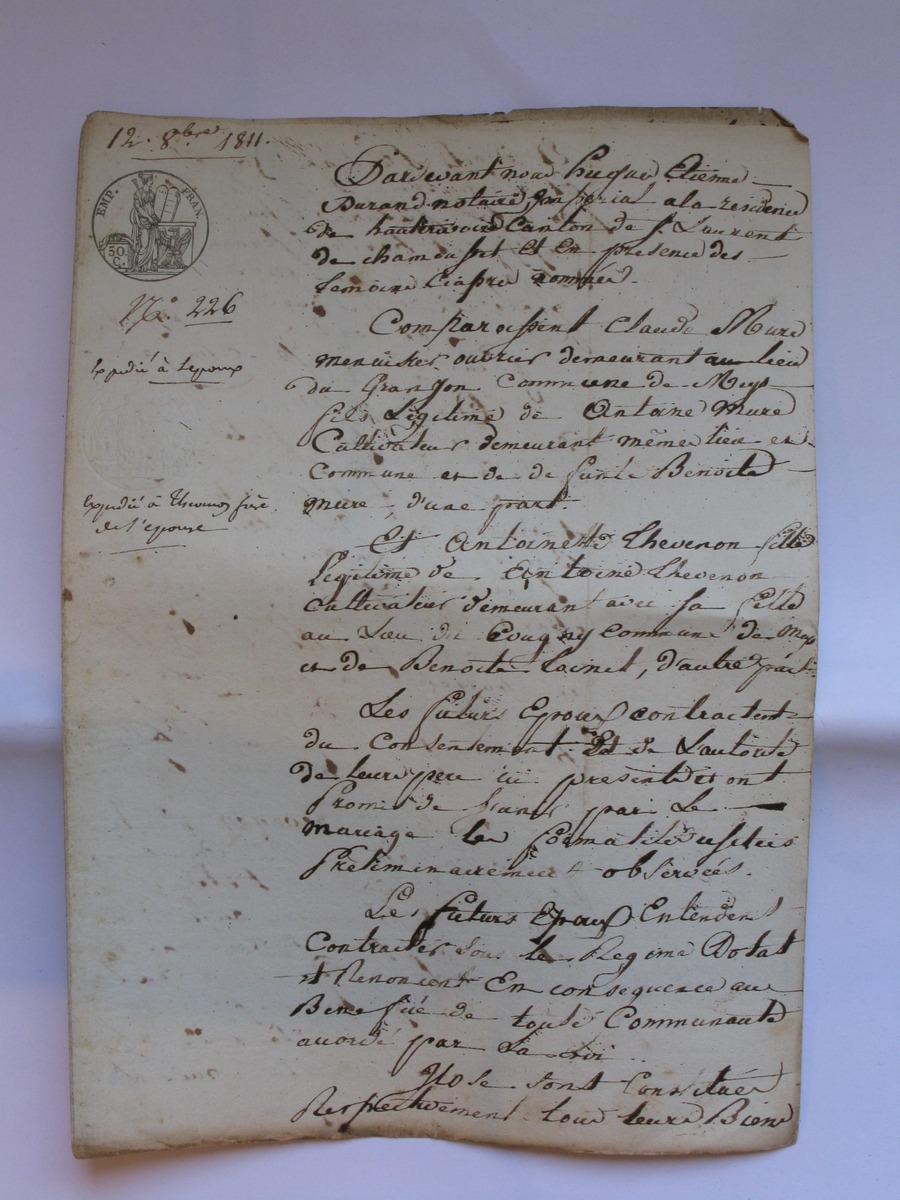 12. 8bre 1811.
EMP. FRAN.
50 C.
N.° 226
Expedié à Lepoux
Expedié à Thevenon frère
de l'epouse
Pardevant nous hugue Etienne
Durand notaire Imperial a la residence
de hauterivoire Canton de St Laurent
de chamousset Et En presence des
temoins Ciapres nommés.
Comparoissent Claude Mure
menuisier ouvrier demeurant au lieu
du Granjon Commune de Meys
fils Légitime de Antoine Mure
Cultivateur demeurant même lieu et
Commune et de defunte Benoite
mure, d'une part.
Et Antoinette Thevenon fille
Legitime de Antoine Thevenon
cultivateur demeurant avec sa fille
au Lieu de Cougny commune de Meys
et de Benoite, d'autre part.
Les futurs Epoux contractent
du Consentement Et de Lautorité
de leurs pere ici presents et ont
Promis de sunir par Le
mariage les formalités usitées
Preliminairement observées.
Les futurs Epoux Entendent
Contracter sous le Regime Dotal
et Renoncent En consequence au
Benefice de toute Communauté
accordé par La Loi
Ils se sont Constitués
Respectivement tous leurs Biens